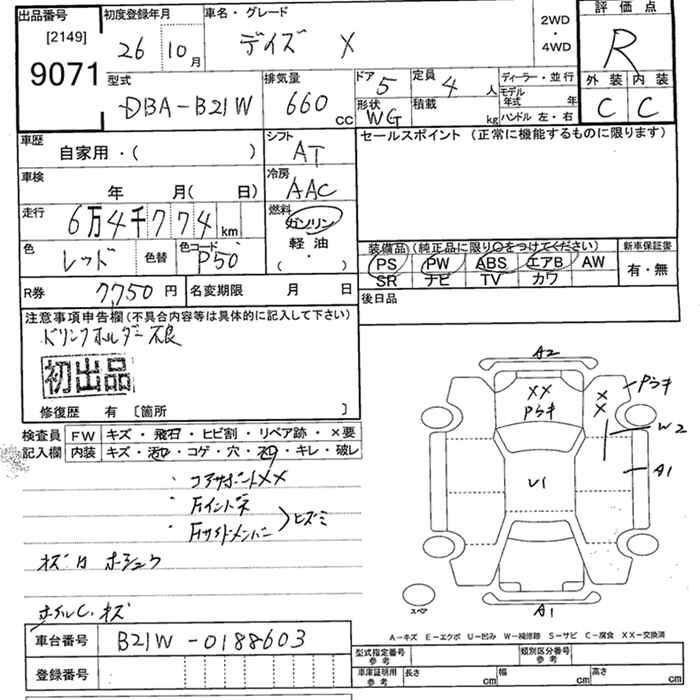 出品番号 初度登録年月 車名・グレード 2WD・4WD 評価点
[2149]
9071 26 10月 デイズ X R
型式 排気量 ドア 5 定員 4人 ディーラー・並行 外装 内装
DBA-B21W 660cc 形状 WG 積載 kg モデル年式 年 C C
ハンドル 左・右
車歴 シフト セールスポイント(正常に機能するものに限ります)
自家用・( ) AT
車検 冷房
年 月( 日) AAC
走行 燃料
6万4千774km ガソリン
軽油
・
( )
色 色替 色コード 装備品(純正品に限り○をつけてください) 新車保証書
レッド P50 PS PW ABS エアB AW 有・無
SR ナビ TV カワ
R券 7,750円 名変期限 月 日 後日品
注意事項申告欄(不具合内容等は具体的に記入して下さい)
ドリンクホルダー不良
初出品
修復歴 有 〔箇所 〕
検査員 FW キズ・飛石・ヒビ割・リペア跡・×要
記入欄 内装 キズ・汚・コゲ・穴・・キレ・破レ
・コアサポートXX
・Fインパネ
・Fサイドメンバー
ヒズミ
ホシュウ
ホイルC.キズ
A2
XX
Pラキ
X
X
Pラキ
W2
A1
U1
A1
スペア
A-キズ E-エクボ U-凹み W-補修跡 S-サビ C-腐食 XX-交換済
車台番号 B21W-0188603
登録番号
型式指定番号 参考 類別区分番号 参考
車庫証明用 参考 長さ cm 幅 cm 高さ cm